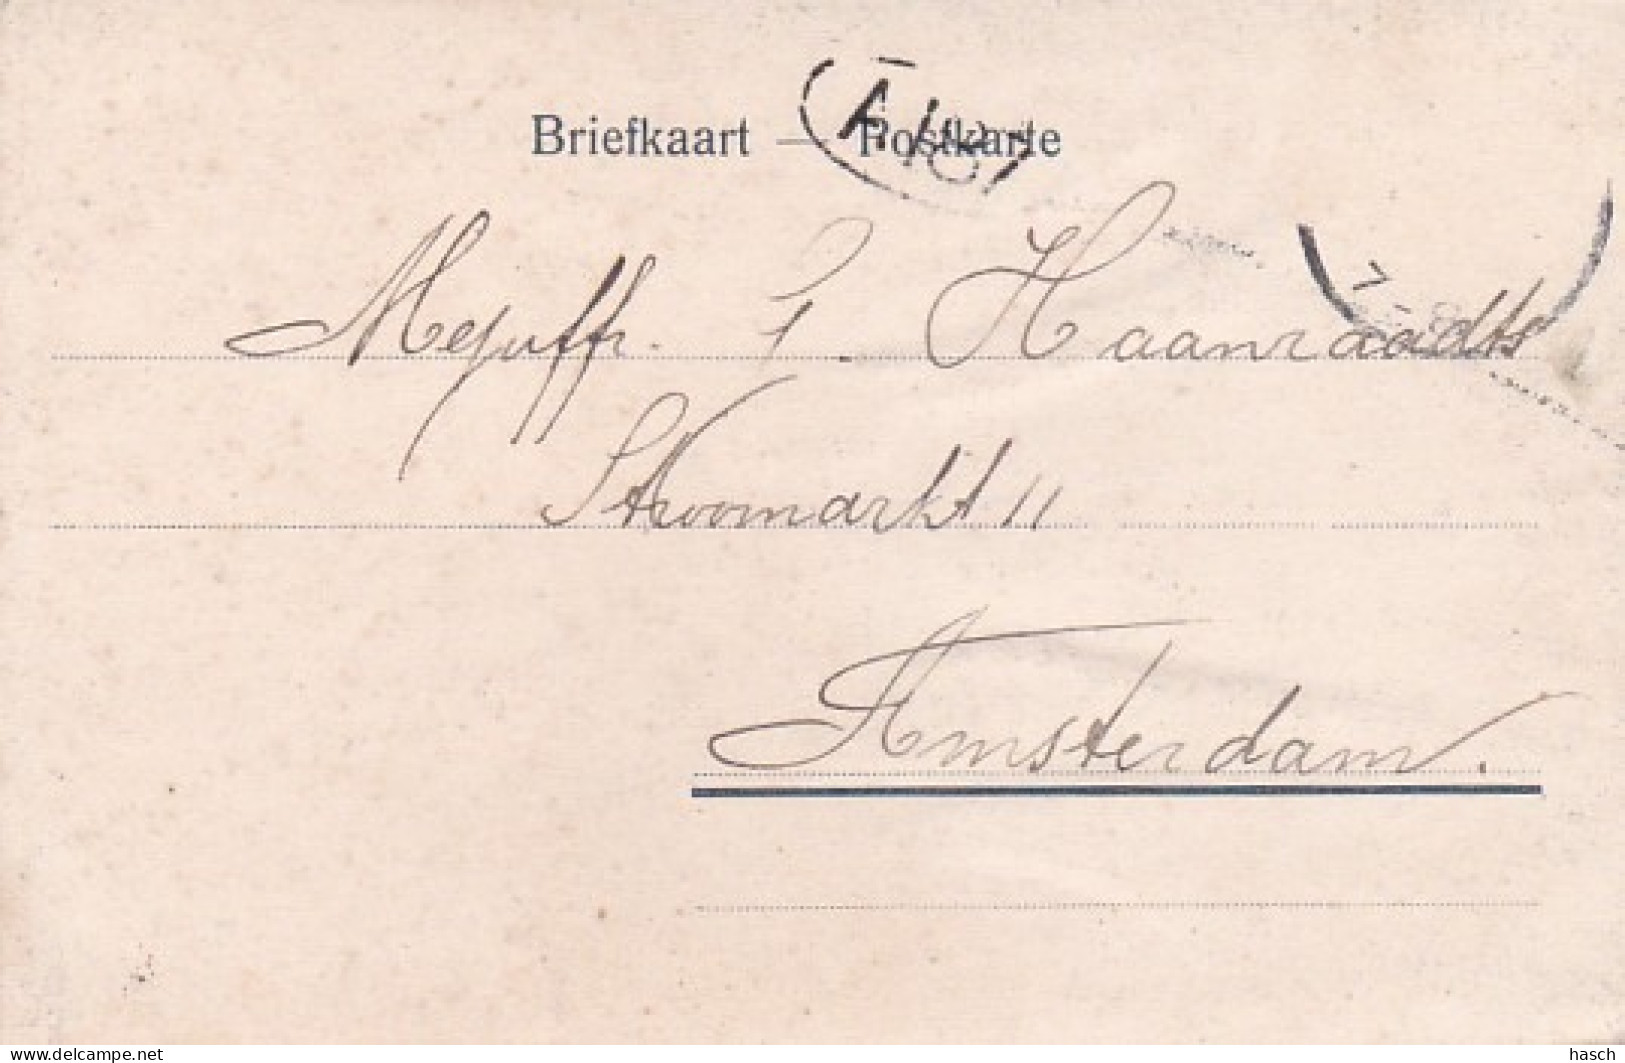 Briefkaart — Postkarte
Mejuffr. J. Haanraadts
Stroomarkt 11
Amsterdam.
www.delcampe.net
hasch